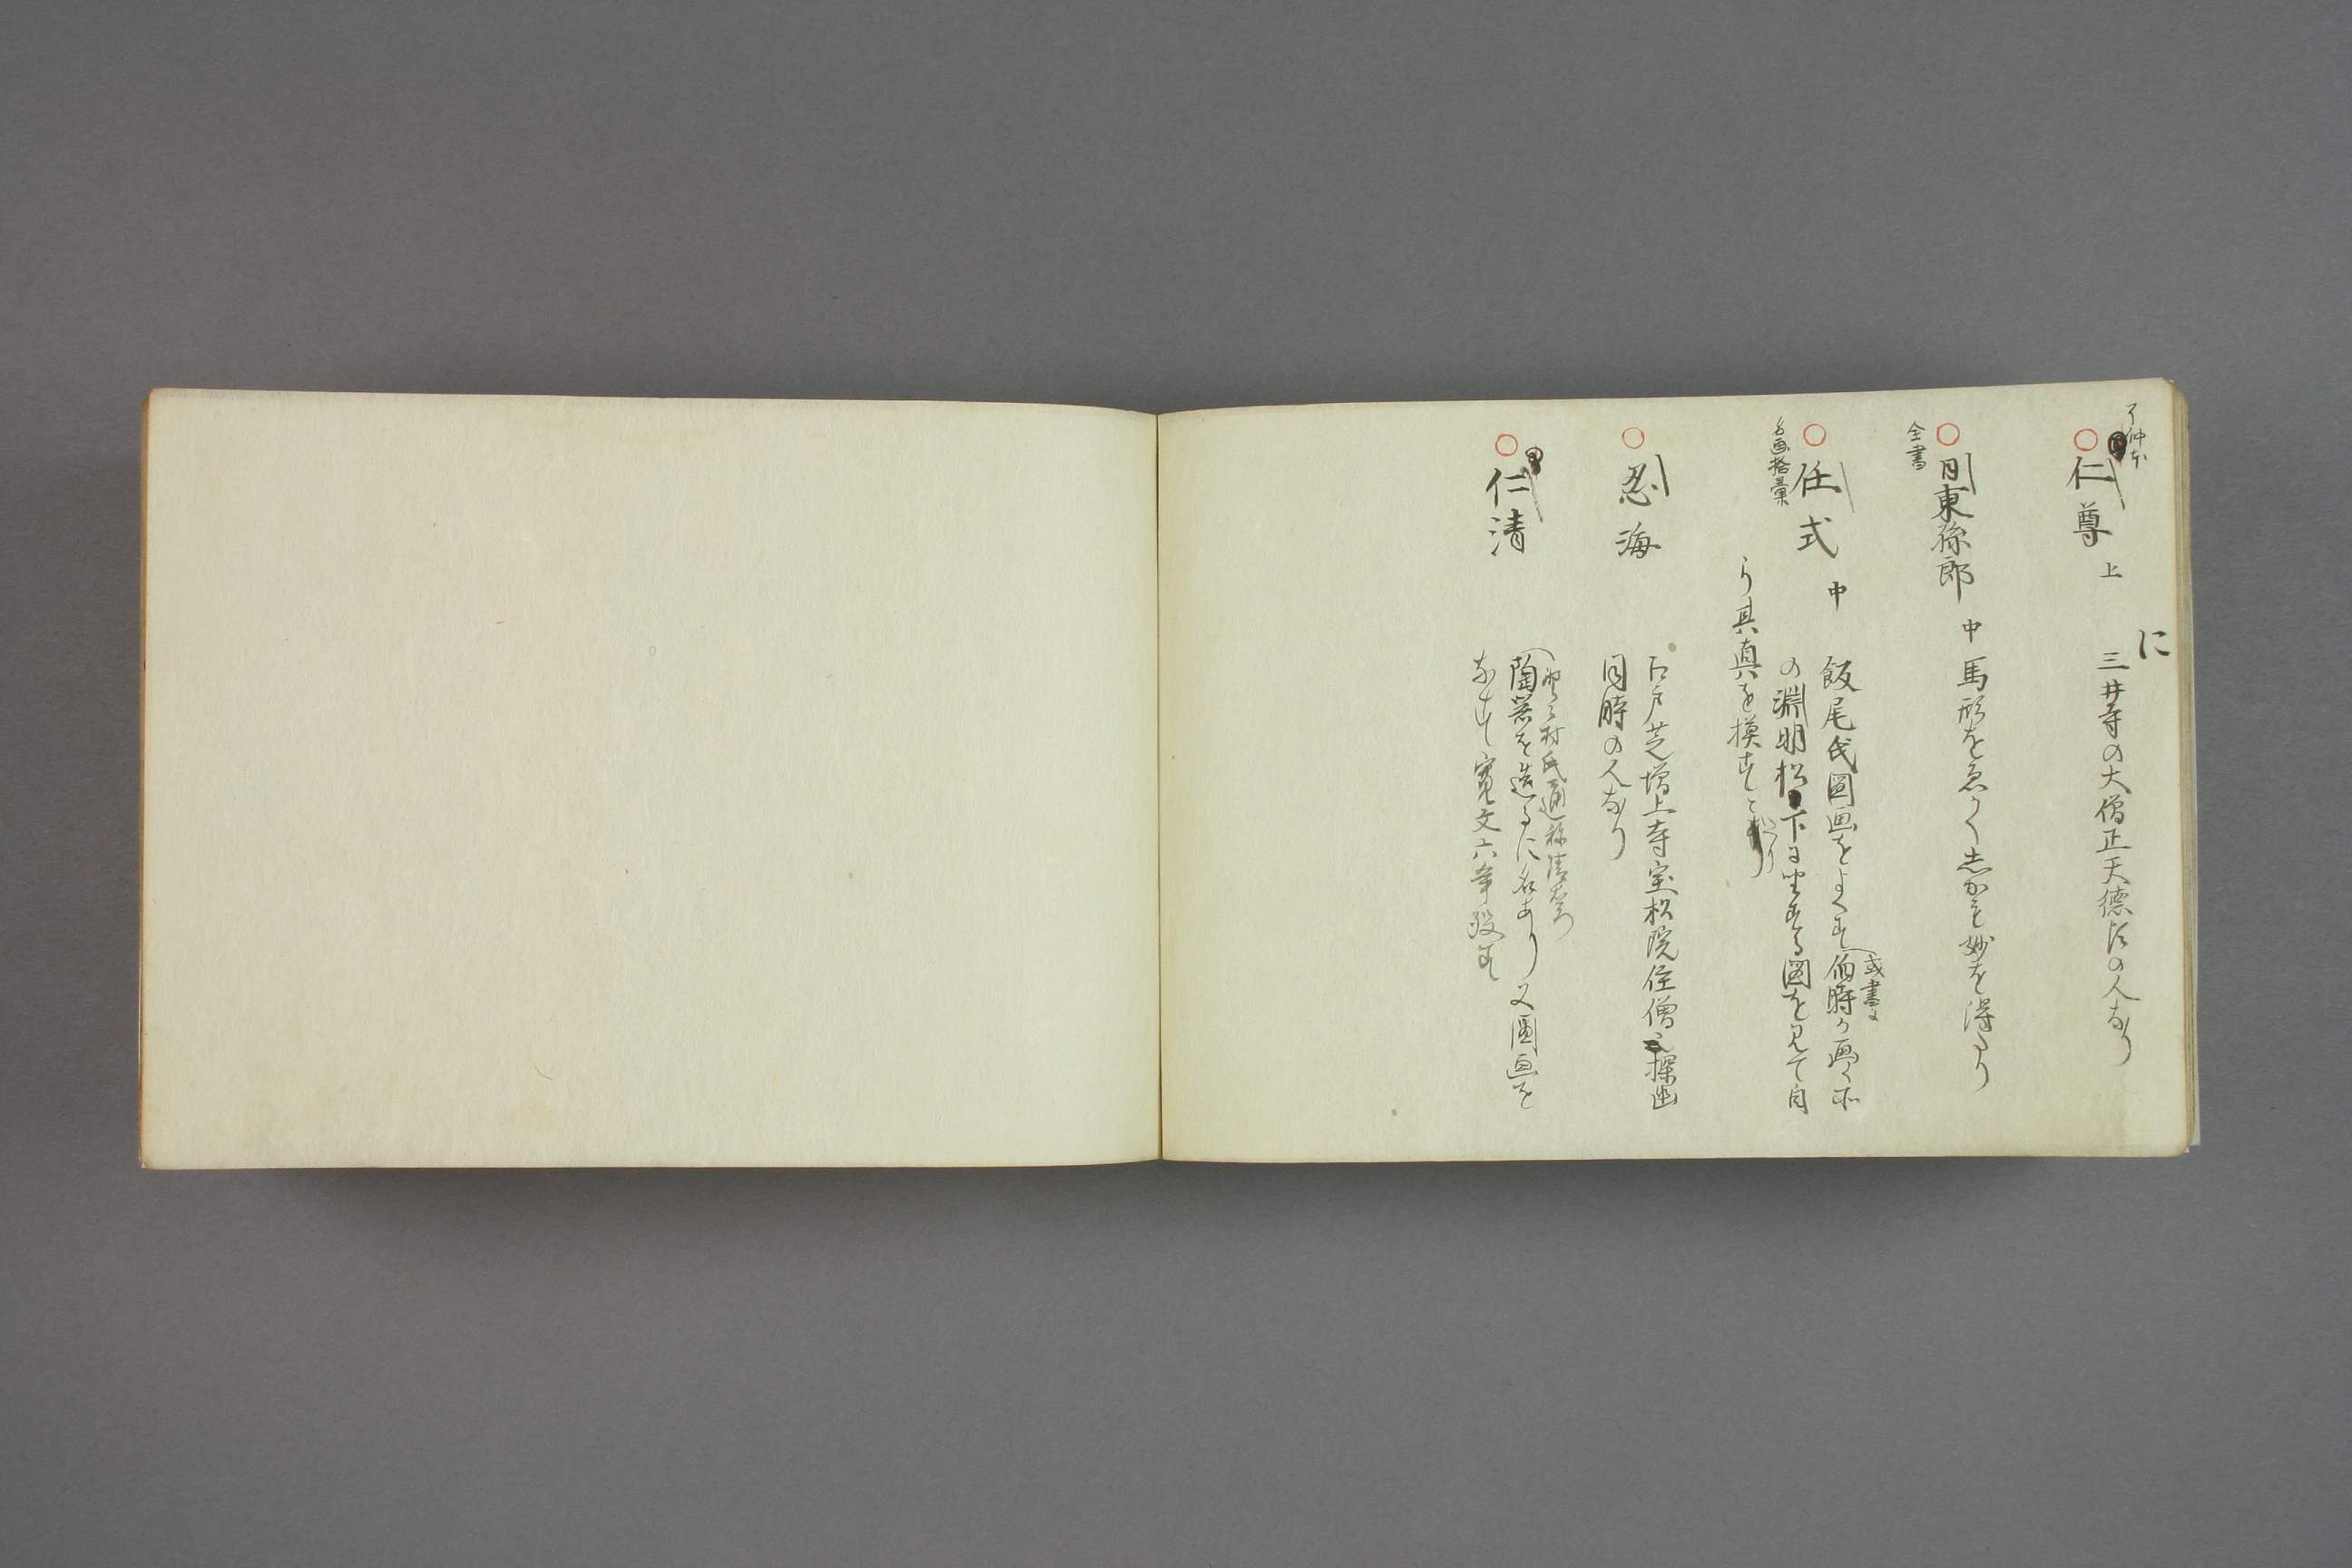 に
了仲本
仁尊 上 三井寺の大僧正天徳比の人なり
日東孫郎 中 馬形をゑかくしかも妙を得たり
全書
任式 中 飯尾氏圖画をよくす或書に伯時か画く所
の淵明松下に坐する図を見て自
ら其真を模すといへり
名画拾彙
忍海 江戸芝増上寺宝松院住僧探幽
同時の人なり
仁清 野々村氏通称清右衛門
陶器を造るに名あり又圖画を
なす寛文六年歿す